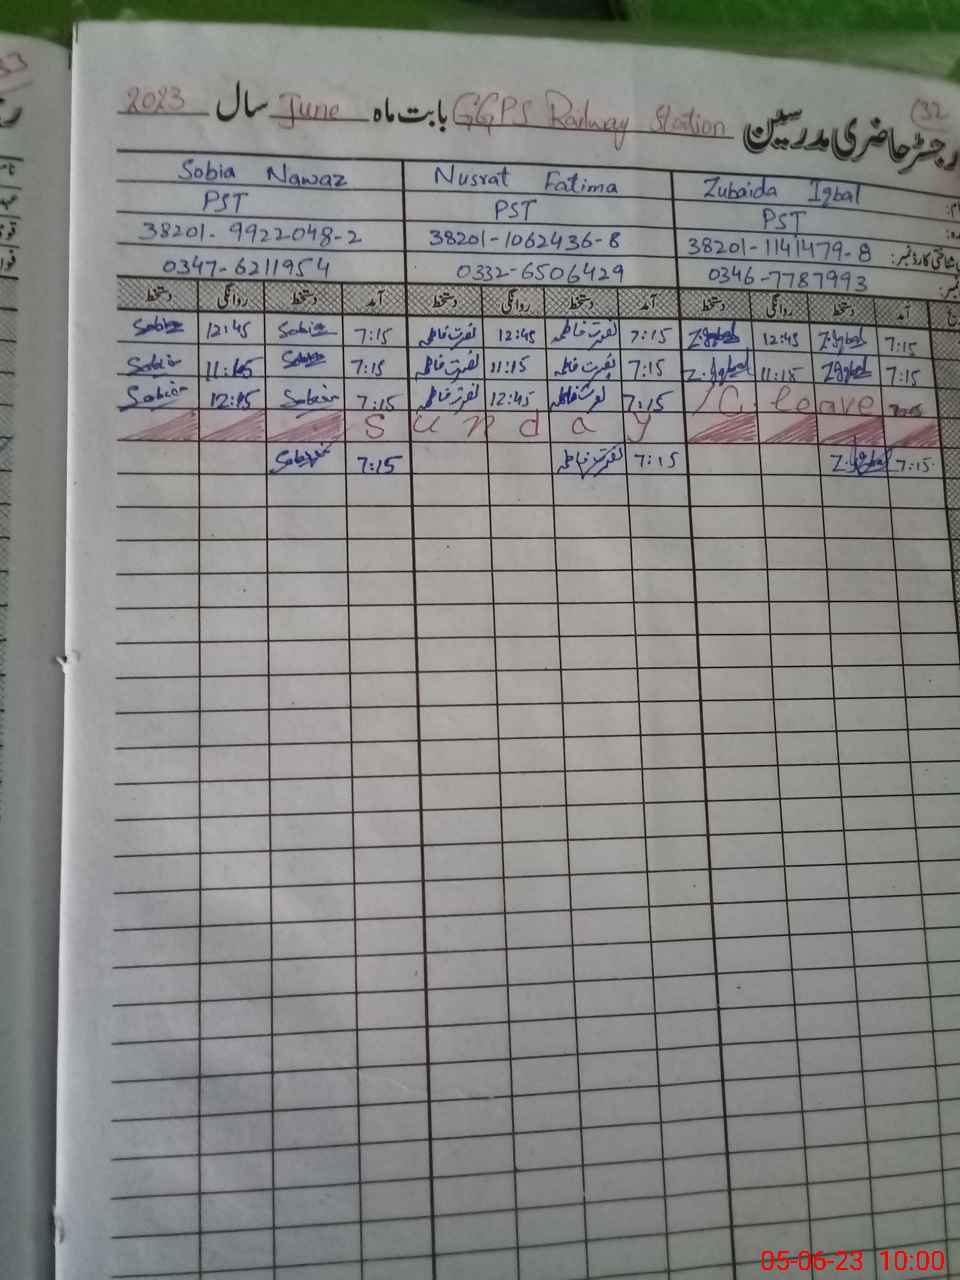 32
رجسٹر حاضری مدرسین GGPS Railway Station بابت ماہ June سال 2023
Sobia Nawaz Nusrat Fatima Zubaida Iqbal
PST PST PST
38201-9922048-2 38201-1062436-8 38201-1141479-8 شناختی کارڈ نمبر:
0347-6211954 0332-6506429 0346-7787993
دستخط روانگی دستخط آمد دستخط روانگی دستخط آمد دستخط روانگی دستخط آمد
Sobia 12:45 Sobia 7:15 نصرت فاطمہ 12:45 نصرت فاطمہ 7:15 Z.Iqbal 12:45 Z.Iqbal 7:15
Sobia 11:15 Sobia 7:15 نصرت فاطمہ 11:15 نصرت فاطمہ 7:15 Z.Iqbal 11:15 ZIqbal 7:15
Sobia 12:45 Sobia 7:15 نصرت فاطمہ 12:45 نصرت فاطمہ 7:15 leave
Sunday
Sobia 7:15 نصرت فاطمہ 7:15 Z.Iqbal 7:15
05-06-23 10:00